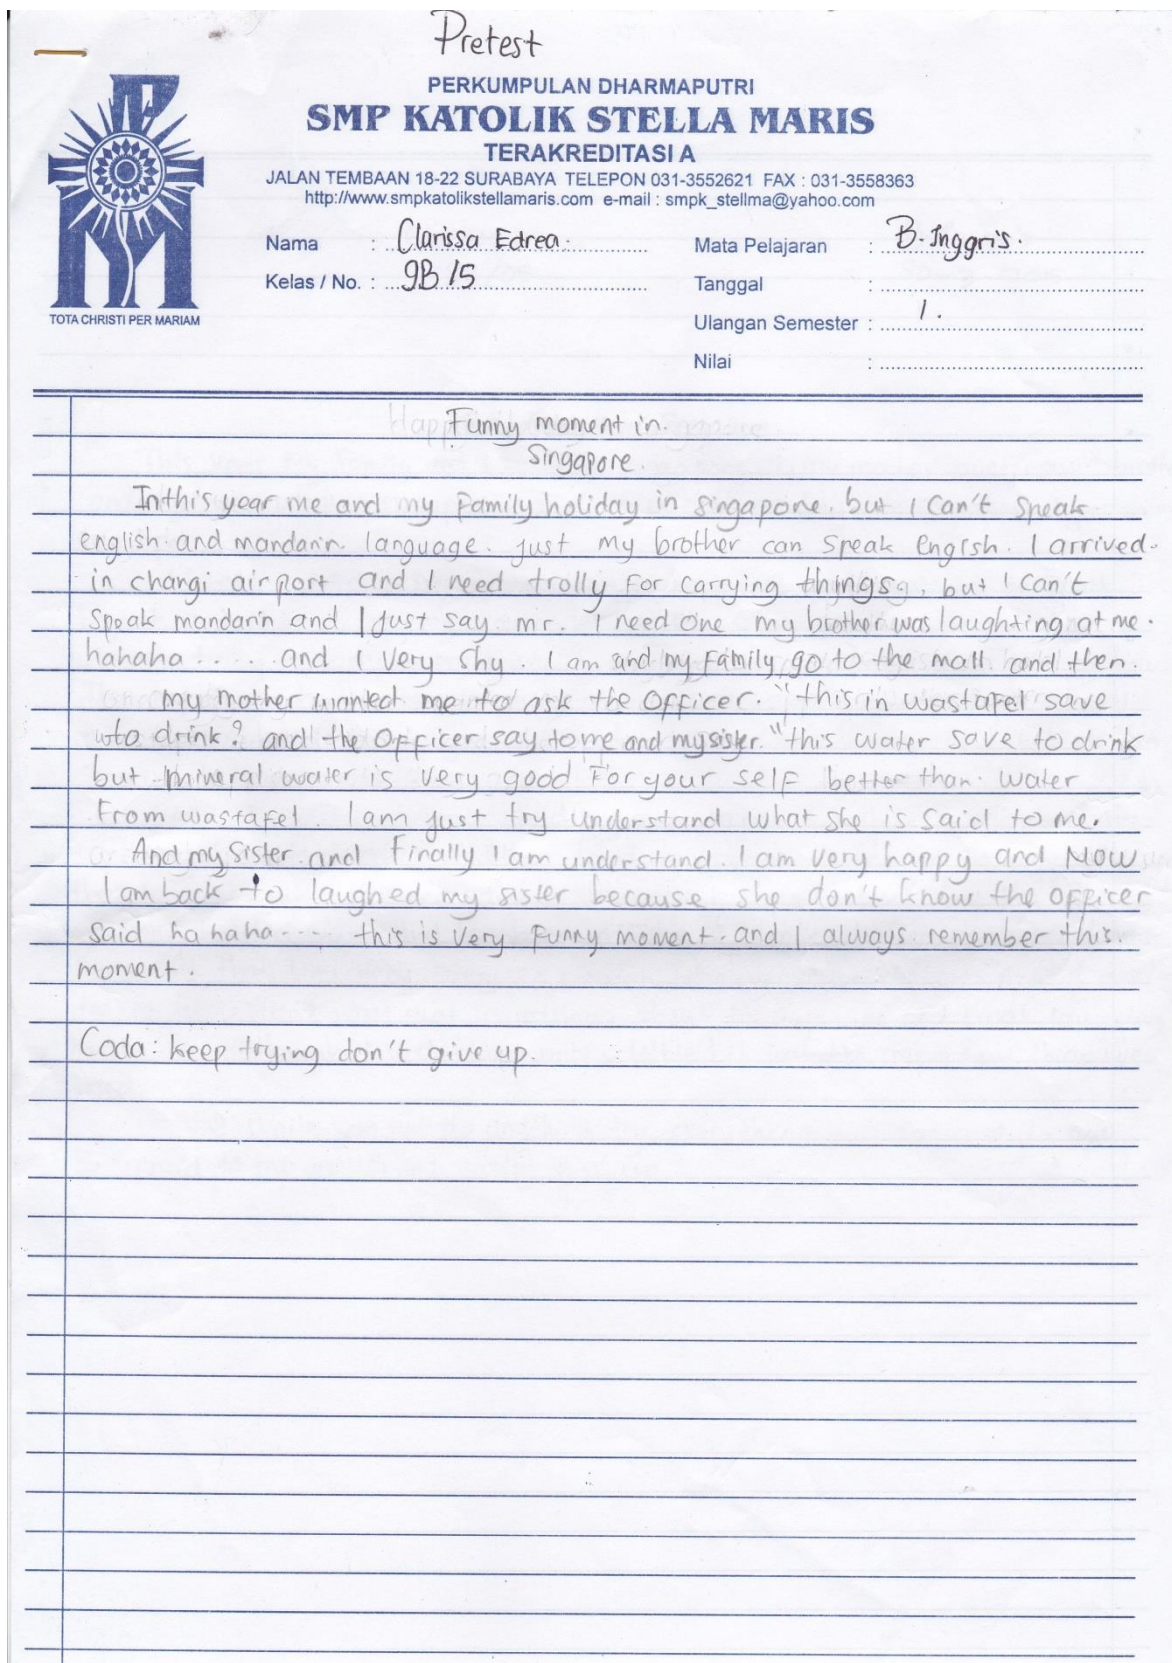 Pretest
PERKUMPULAN DHARMAPUTRI
SMP KATOLIK STELLA MARIS
TERAKREDITASI A
JALAN TEMBAAN 18-22 SURABAYA TELEPON 031-3552621 FAX : 031-3558363
http://www.smpkatolikstellamaris.com e-mail : smpk_stellma@yahoo.com
TOTA CHRISTI PER MARIAM
Nama : Clarissa Edrea.
Kelas / No. : 9B/5
Mata Pelajaran : B. Inggris.
Tanggal :
Ulangan Semester : 1.
Nilai :
Funny moment in.
Singapore.
In this year me and my Family holiday in singapore. but I can't speak
english and mandarin language. just my brother can speak Engrsh. I arrived
in changi airport and I need trolly For carrying things, but I can't
speak mandarin and I just say mr. I need one my brother was laughting at me.
hahaha..... and I very shy. I am and my Family go to the mall and then.
my mother wanted me to ask the officer. "this in wastafel save
to drink? and the officer say to me and my sister. "this water save to drink
but mineral water is very good For your self better than water
From wastafel. I am just try understand what she is said to me.
And my sister and Finally I am understand. I am very happy and Now
I am back to laughed my sister because she don't know the officer
said ha haha.... this is very Funny moment. and I always remember this.
moment.
Coda: keep trying don't give up.